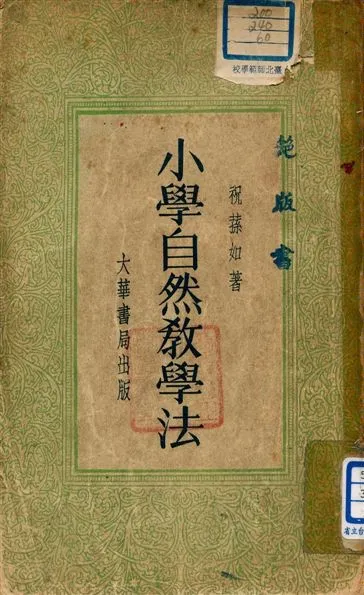 200
240
60
臺北師範學校
絕版書
祝蓀如著
小學自然教學法
大華書局出版